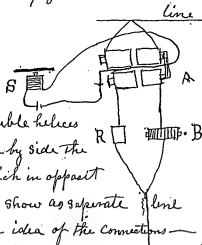 line
S
A
uble helices
R
B
by side the
ich in oppasit
show as saperate line
idea of the connections —